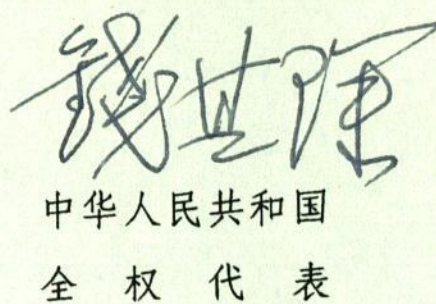 錢其琛
中华人民共和国
全权代表